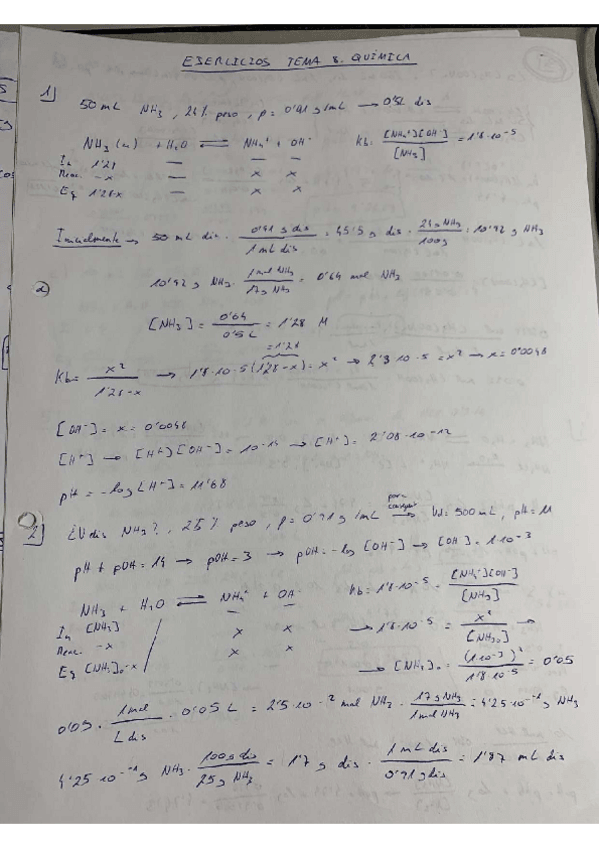 EJERCICIOS TEMA 8. QUÍMICA
1) 50 mL NH3, 24% peso, ρ = 0'91 g/mL → 0'5L dis
NH3 (ac) + H2O ⇌ NH4+ + OH- Kb = [NH4+][OH-]/[NH3] = 1'8·10^-5
In 1'28 — — —
Reac. -x — x x
Eq 1'28-x — x x
Inicialmente → 50 mL dis · 0'91 g dis/1 mL dis = 45'5 g dis · 24 g NH3/100g = 10'92 g NH3
10'92 g NH3 · 1 mol NH3/17 g NH3 = 0'64 mol NH3
[NH3] = 0'64/0'5 L = 1'28 M
≈1'28
Kb = x²/1'28-x → 1'8·10^-5 (1'28-x) = x² → 2'3·10^-5 = x² → x = 0'0048
[OH-] = x = 0'0048
[H+] → [H+][OH-] = 10^-14 → [H+] = 2'08·10^-12
pH = -log[H+] = 11'68
2) ¿V dis NH3?, 25% peso, ρ = 0'91 g/mL → para conseguir Vd = 500 mL, pH = 11
pH + pOH = 14 → pOH = 3 → pOH = -log [OH-] → [OH-] = 1·10^-3
NH3 + H2O ⇌ NH4+ + OH- Kb = 1'8·10^-5 = [NH4+][OH-]/[NH3]
In [NH3] — —
Reac. -x x x → 1'8·10^-5 = x²/[NH3]0 →
Eq [NH3]0-x x x → [NH3]0 = (1·10^-3)²/1'8·10^-5 = 0'05
0'05 · 1 mol/L dis · 0'05 L = 2'5·10^-2 mol NH3 · 17 g NH3/1 mol NH3 = 4'25·10^-1 g NH3
4'25·10^-1 g NH3 · 100 g dis/25 g NH3 = 1'7 g dis · 1 mL dis/0'91 g dis = 1'87 mL dis